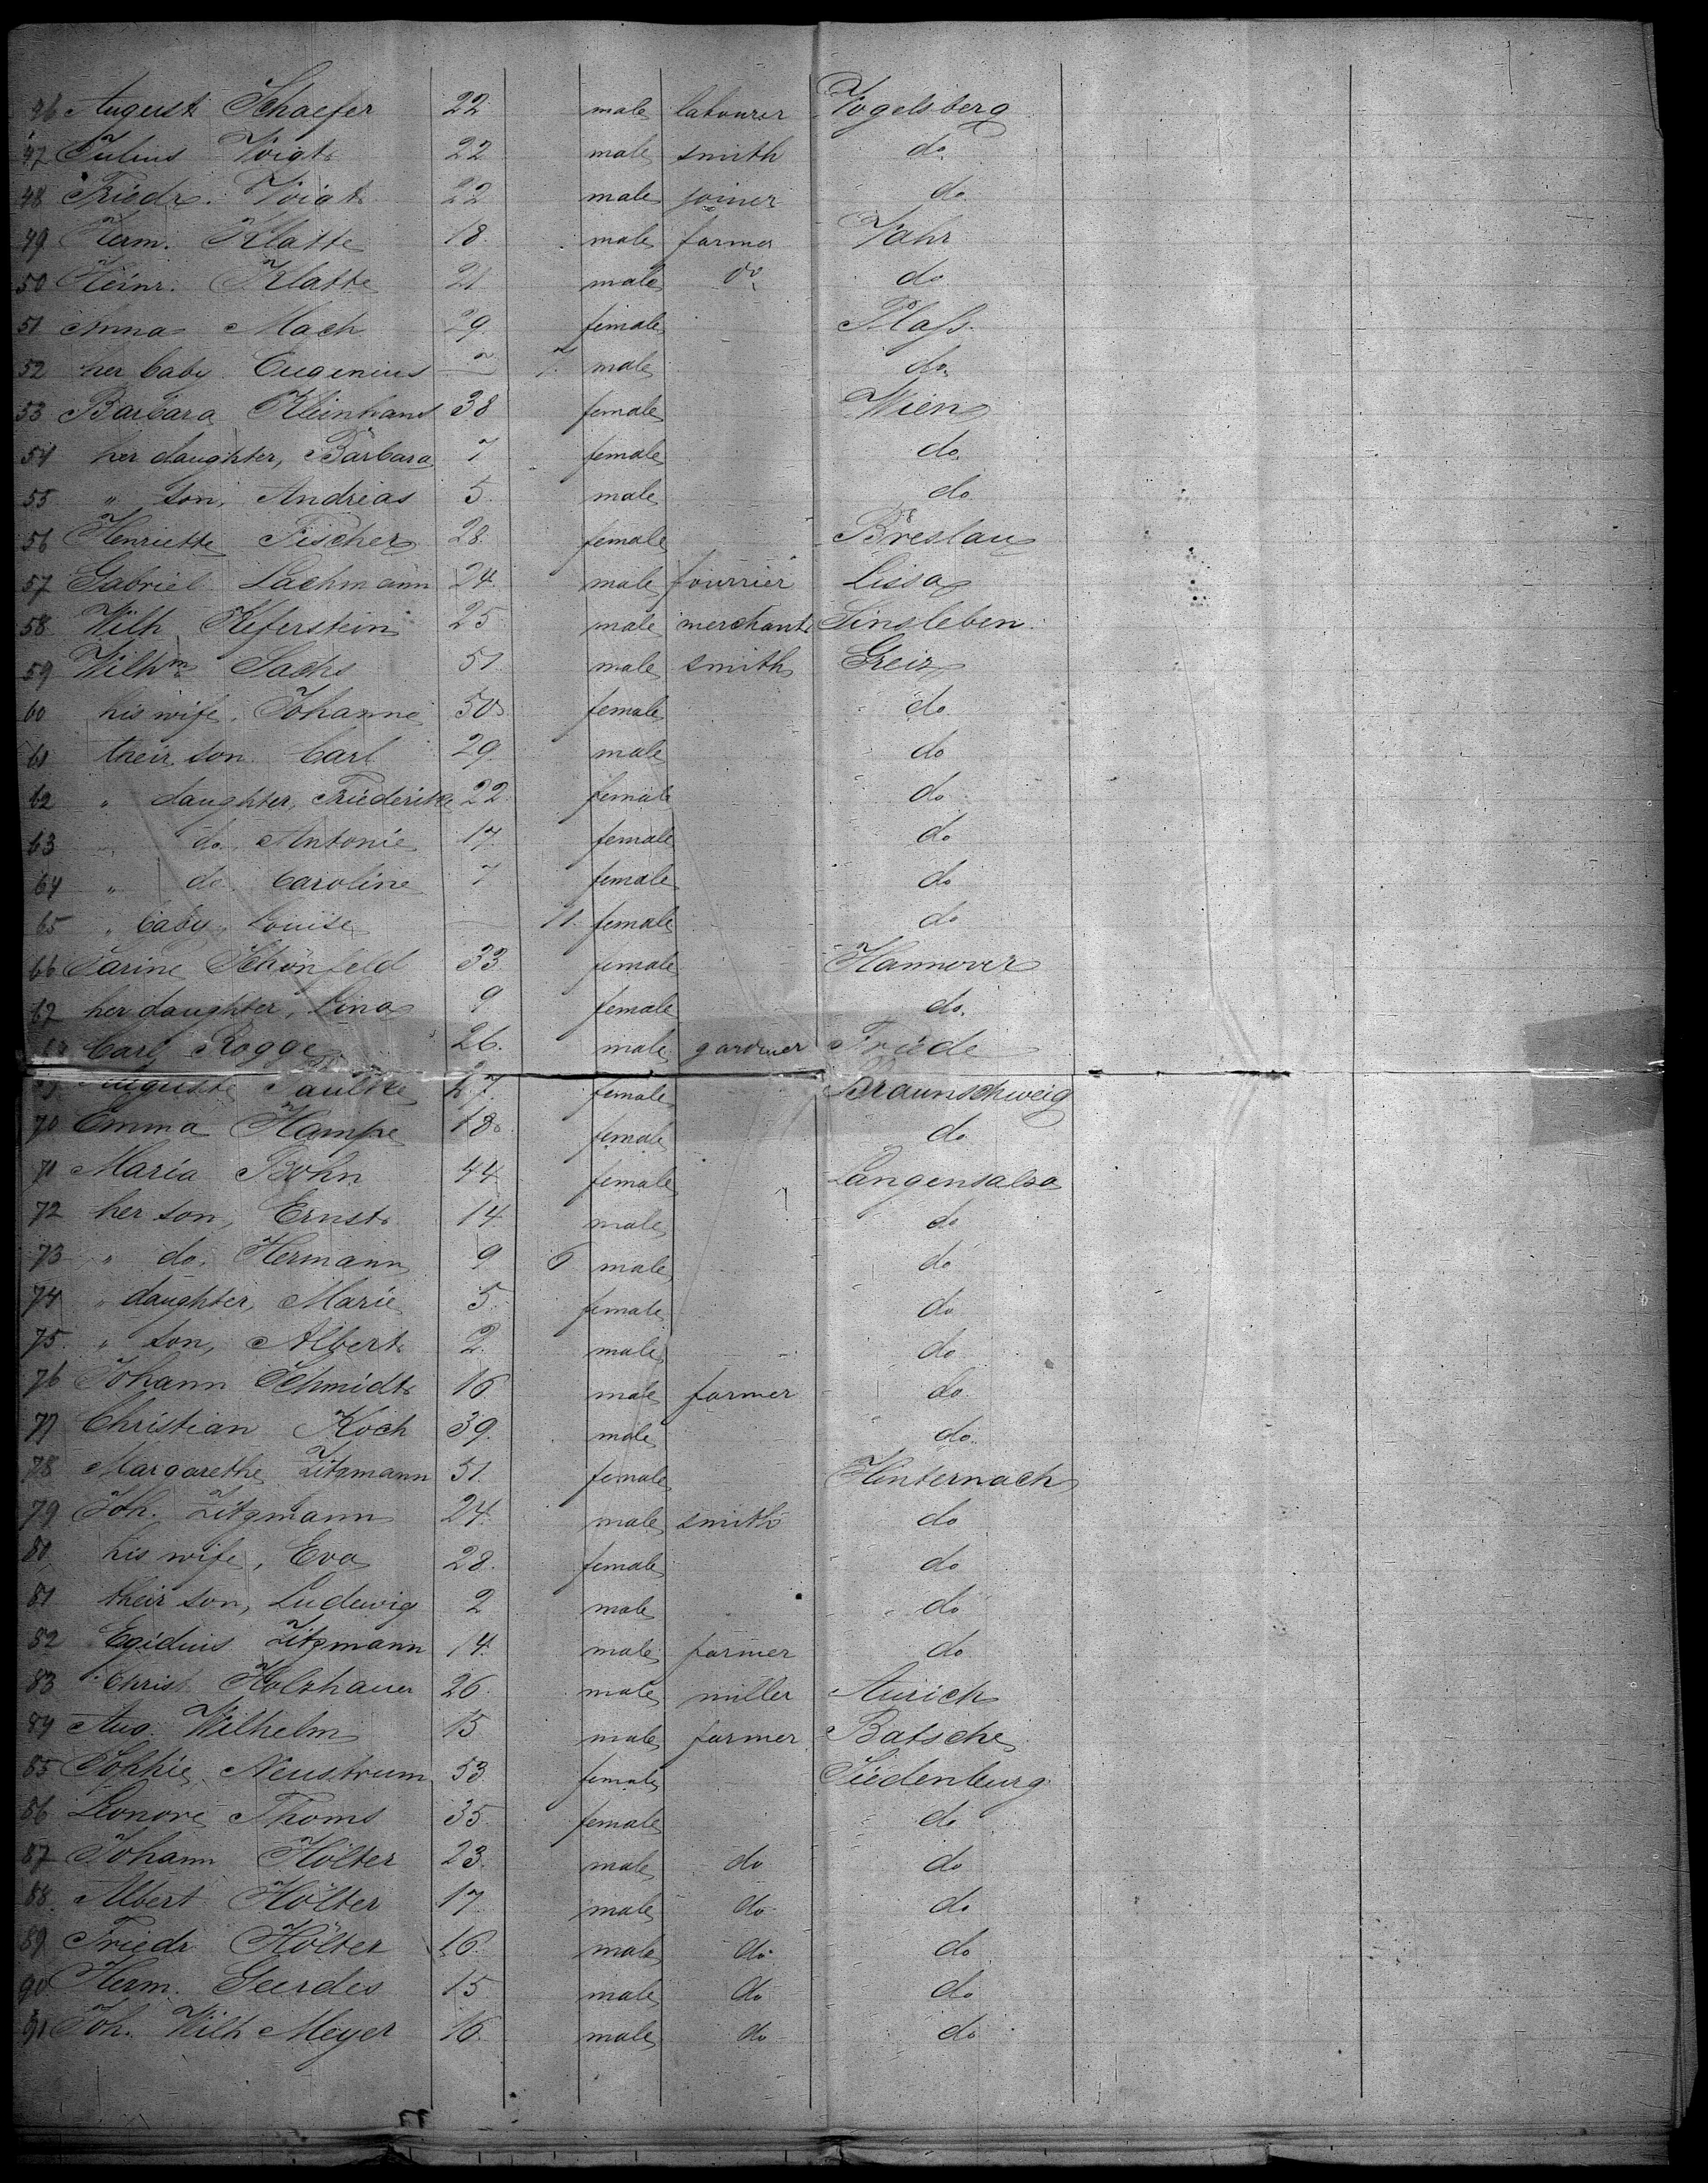 46 August Schaefer 22 male labourer Vogelsberg
47 Julius Voigt 22 male smith do.
48 Friedr. Voigt 22 male joiner do
49 Herm. Klatte 18. male farmer Vahr
50 Heinr. Klatte 21 male do. do
51 Anna Mach 29. female Plass.
52 her baby Eugenius — 7. male do.
53 Barbara Kleinhans 38 female Wien
54 her daughter, Barbara 7 female do.
55 " son, Andreas 5. male do.
56 Henriette Fischer 28. female Breslau
57 Gabriel Lachmann 24. male fourrier Lissa
58 Wilh Keferstein 25 male merchant Sinsleben.
59 Wilhm Sachs 51. male smith Greiz
60 his wife, Johanne 50. female do.
61 their son Carl 29. male do
62 " daughter, Friederike 22. female do
63 " do. Antonie 17. female do
64 " do. Caroline 7 female do
65 " baby, Louise — 11. female do
66 Sarine Schönfeld 33 female Hannover
67 her daughter, Lina 9 female do.
68 Carl Rogge 26. male gardner Friede
69 Auguste Paulke 47. female Braunschweig
70 Emma Hampe 18. female do
71 Maria Bohn 44 female Langensalza
72 her son, Ernst 14. male do
73 " do. Hermann 9 6 male do
74 " daughter, Marie 5. female do
75. " son, Albert 2. male do
76 Johann Schmidt 16 male farmer do.
77 Christian Koch 39. male do.
78 Margarethe Zitzmann 51. female Hinternach
79 Joh. Zitzmann 24. male smith do
80 his wife, Eva 28. female do
81 their son, Ludewig 2 male do
82 Egidius Zitzmann 14. male farmer do
83 Christ. Holzhauer 26. male miller Aurich
84 Aug. Wilhelm 15 male farmer Batsche
85 Sophie Neustrum 53 female Siedenburg
86 Leonore Thoms 35 female do
87 Johann Hölter 23. male do do
88. Albert Hölter 17. male do do
89 Friedr. Hölter 16. male do do
90 Herm. Geerdes 15 male do do
91 Joh. Wilh Meyer 16. male do do